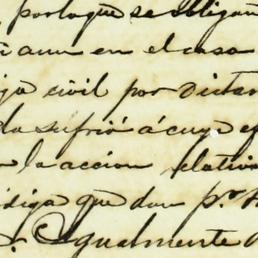 por lo que se obligan
aun en el caso
civil por dictar
sufrió á cuyo
la accion
diga que don p.r
Igualmente